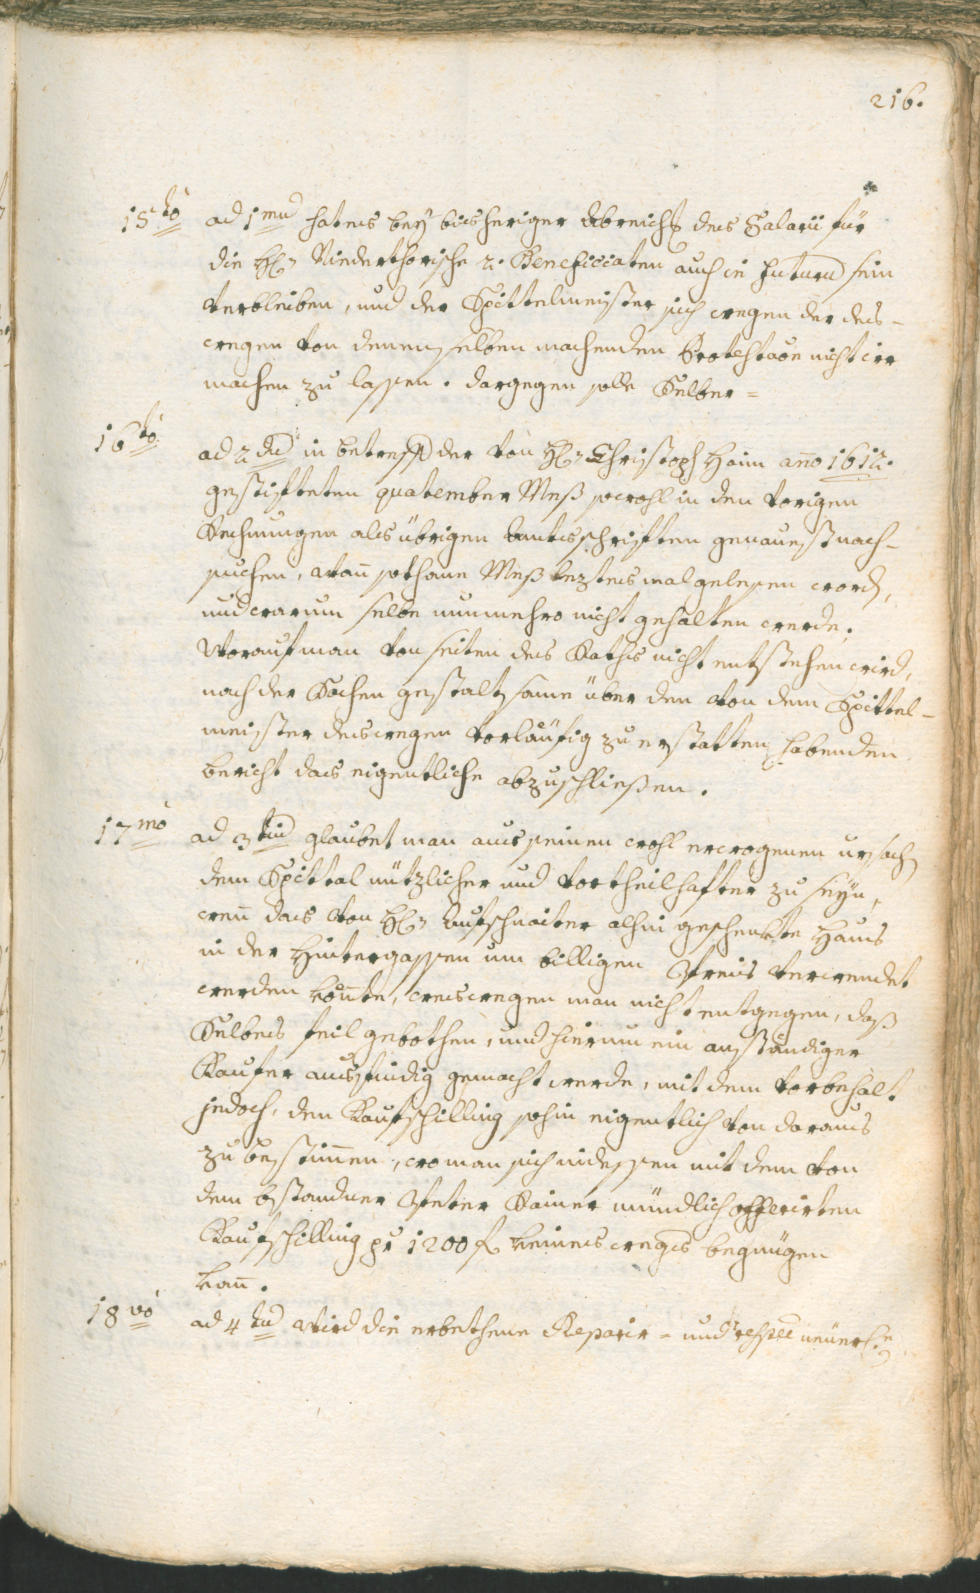 216.
15to ad 1mu hat es bey bisheriger Abreichg des Salarii für
die H: Niederthorische 2. Beneficiaten auch in futuru sein
verbleiben, und der Spittelmeister sich wegen der des-
wegen von denenselben machenden Protestaõn nicht irr
machen zu lassen. dargegen solle Selber =
16to ad 2du in betreff der von H: Christoph Haim anno 1612.
gestifteten quatember Meß sowohl in den vorigen
Rechnungen als übrigen Amtsschriften genauest nach-
suchen, wañ sothane Meß leztes mal gelesen word,
und warum selbe nunmehro nicht gehalten werde;
Worauf man von seiten des Raths nicht entstehen wird,
nach der Sachen gestaltsame über den von dem Spittel-
meister deswegen vorläufig zu erstatten habenden
bericht das eigentliche abzuschließen.
17mo ad 3tiu glaubet man aus seinen wohl erwogenen ursach
dem Spittal nützlicher und vortheilhafter zu seyn,
weñ das von H: Aufschnaiter alhin geschenkte Haus
in der Hintergassen um billigen Preis verwendet
werden köñte, weswegen man nicht entgegen, daß
Selbes feil gebothen, und hierum ein anständiger
Kaufer ausfindig gemacht werde, mit dem vorbehalt
jedoch, den Kaufschilling sohin eigentlich von daraus
zu bestimmen, wo man sich indessen mit dem von
dem bstandner Peter Rainer mündlich offerirten
Kaufschilling pr 1200 f keines wegs begnügen
kañ.
18vo ad 4tu Wird die erbethene Reparir= und respee